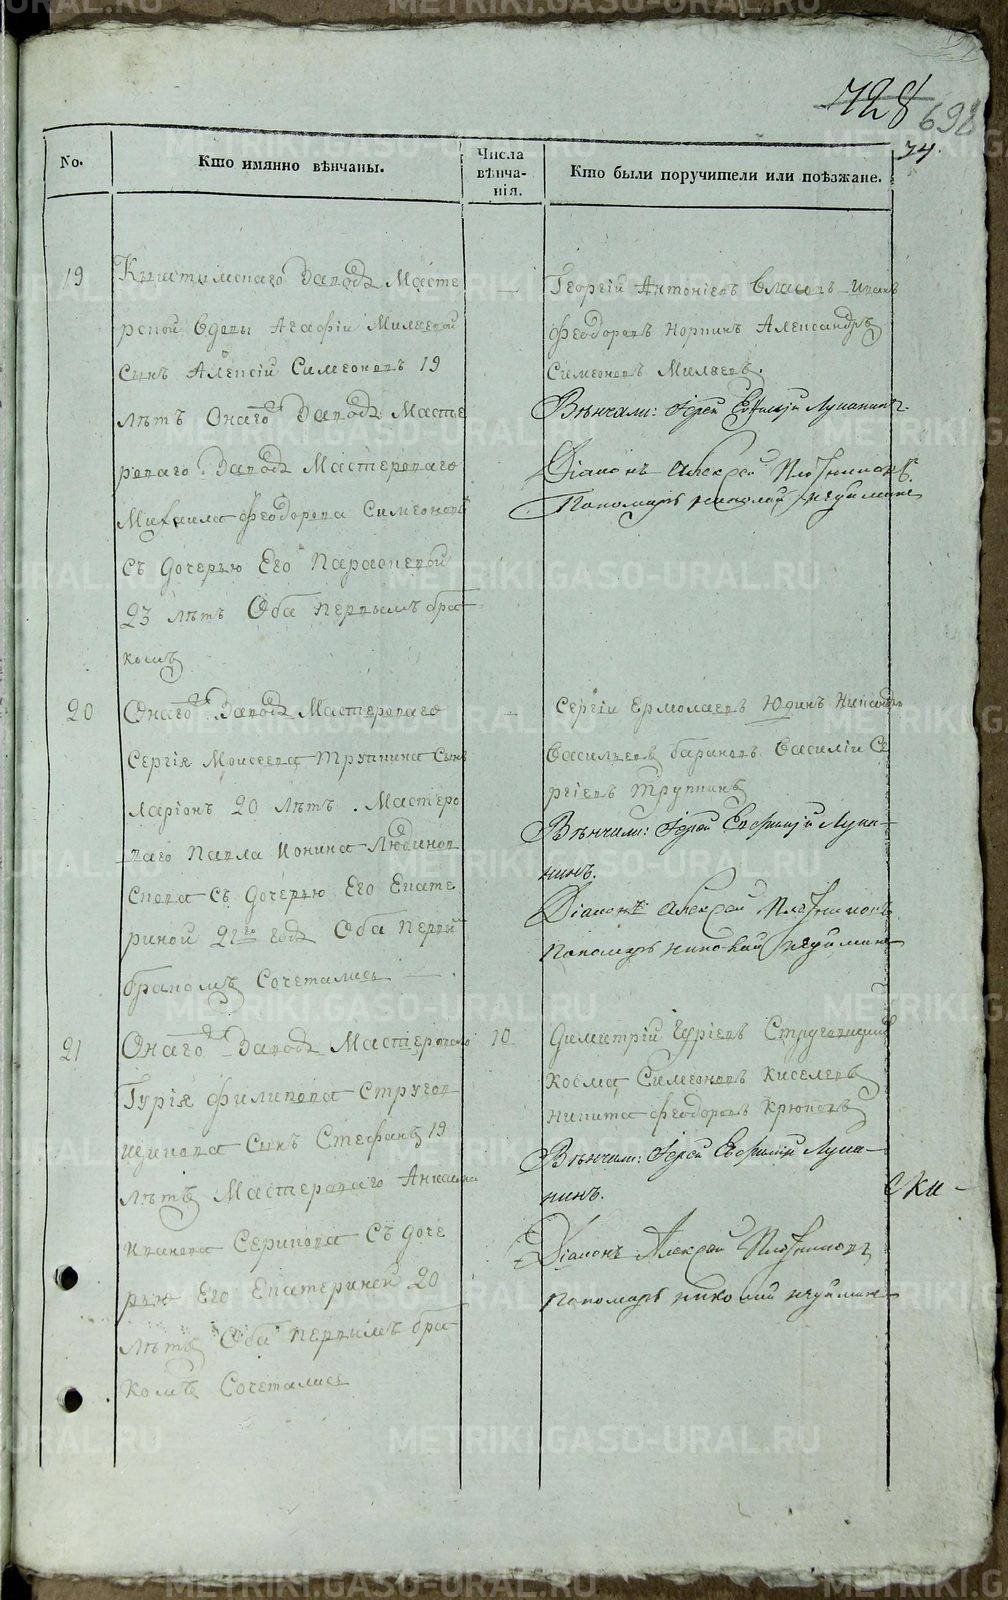 728
698
34.
No.
Кто имянно вѣнчаны.
Числа
вѣнча-
нія.
Кто были поручители или поѣзжане.
19
Кыштымскаго Завода Масте
рской вдовы Агафіи Милѣевой
Сынъ Алексій Симеоновъ 19
лѣтъ Онаго Завода Масте
роваго Завода Мастероваго
Михаила Феодорова Симеонова
Съ Дочерью Его Параскевой
23 лѣтъ Оба первымъ бра-
комъ
—
Георгій Антоніевъ Власовъ Иванъ
Феодоровъ Норкинъ Александръ
Симеоновъ Милѣевъ.
Вѣнчали: Іерей Евфимій Лупанинъ.
Діаконъ Алексѣй Плотниковъ.
Пономарь Николай
20
Онаго Завода Мастероваго
Сергія Моисеева Трупнина Сынъ
Ларіонъ 20 лѣтъ. Мастеро
ваго Павла Ионина Любимов
Скова Съ Дочерью Его Екате
риной 21го года Оба первы
бракомъ Сочетались —
—
Сергіи Ермолаевъ Юдинъ Никандръ
Васильевъ Бариновъ Василіи Се
ргіевъ Трупнинъ
Вѣнчали: Іерей Евфимій Лупа-
нинъ.
Діаконъ Алексѣй Плотниковъ
Пономарь Николай
21
Онаго Завода Мастероваго
Гурія Филипова Стругов
щикова Сынъ Стефанъ 19
лѣтъ Мастероваго
Иванова Серикова Съ доче
рью Его Екатериней 20
лѣтъ Оба первымъ бра-
комъ Сочетались
10
Димитрій Гуріевъ Струговщиков
Косма Симеоновъ Киселевъ
Никита Феодоровъ Крюковъ
Вѣнчали: Іерей Евфимій Лупа-
нинъ.
Діаконъ Алексѣй Плотниковъ
Пономарь Николай
METRIKI.GASO-URAL.RU